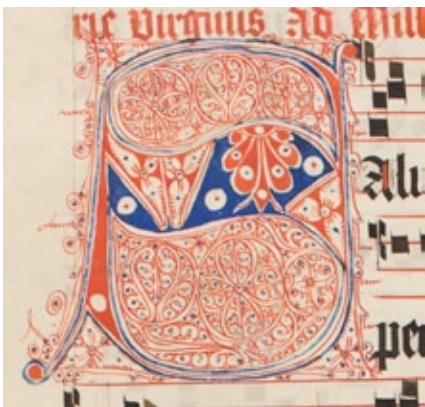 rie Virginis Ad Miſſ
SAlu
per